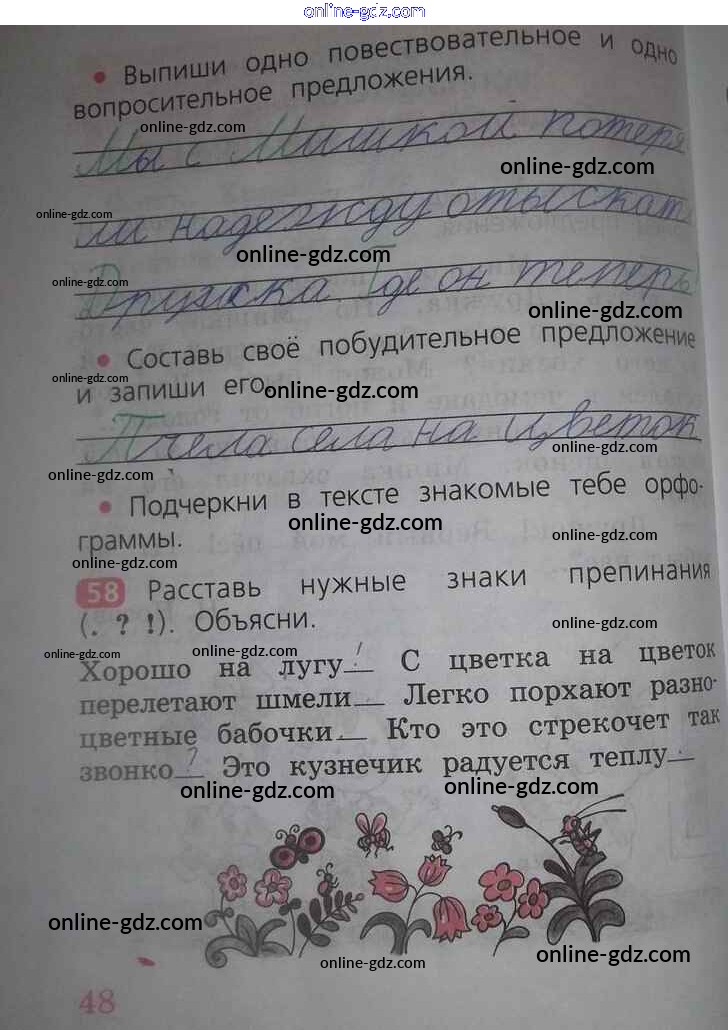 online-gdz.com
• Выпиши одно повествовательное и одно
вопросительное предложения.
online-gdz.com
Мы с Мишкой потеря
online-gdz.com
online-gdz.com
ли надежду отыскать
online-gdz.com
online-gdz.com
Дружка Где он теперь
online-gdz.com
• Составь своё побудительное предложение
online-gdz.com
и запиши его.
online-gdz.com
Пчела села на цветок
online-gdz.com
online-gdz.com
• Подчеркни в тексте знакомые тебе орфо-
online-gdz.com
граммы.
online-gdz.com
online-gdz.com
58 Расставь нужные знаки препинания
(. ? !). Объясни.
online-gdz.com
online-gdz.com
online-gdz.com
Хорошо на лугу ! С цветка на цветок
перелетают шмели . Легко порхают разно-
цветные бабочки . Кто это стрекочет так
звонко ? Это кузнечик радуется теплу .
online-gdz.com
online-gdz.com
online-gdz.com
online-gdz.com
online-gdz.com
48